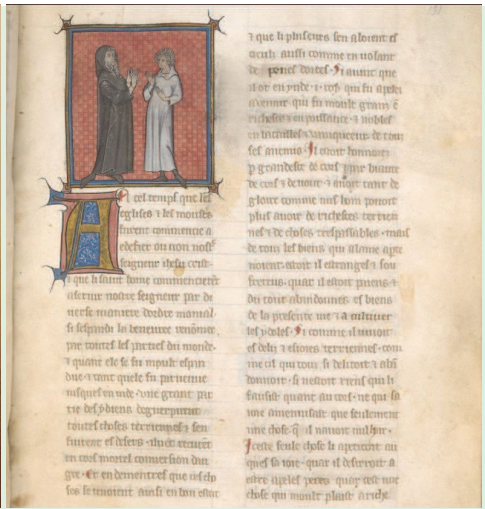 131
A cel temps que les
eglises ⁊ les
furent commencie a
edefier ou non nostre
seigneur ihesu crist.
⁊ que li saint home commencierent
a seruir nostre seigneur par di
uerse maniere dordre monial
si sespandi la beneuree renomee
par toutes les parties du monde.
⁊ quant ele se fu moult espan
due ⁊ tant quele fu paruenue
iusques en inde. vne grant par
tie des ydiens deguerpirent
toutes choses terriennes ⁊ sen
fuirent es desers. illuec
en cors mortel conuersion dan
gre. Et en dementres que ces cho
ses se tenoient ainsi en bon estat
⁊ que li pluseurs sen aloient es
cieuls aussi comme en uolant
de penes dorees. Si auint que
il ot en ynde .i. roy qui fu apelez
auenir qui fu moult grans en
richesces ⁊ en puissance ⁊ nobles
en batailles ⁊ uainqueur de tous
ses anemis. Il estoit honnorez
p grandesce de cors par biaute
de cors ⁊ de uout ⁊ auoit tant de
gloire comme nus hom pooit
plus auoir de richesces terrien
nes ⁊ de choses trespassables. mais
de tous les biens qui a lame apar
tienent. estoit il estranges ⁊ sou
freteus. quar il estoit paiens ⁊
du tout abandonnes es biens
de la presente uie ⁊ a cultiuer
les ydoles. Et comme il uiuoit
es deliz ⁊ es ioies terriennes. com
me cil qui tout se delitoit ⁊ aban
donnoit. si nestoit riens qui li
fausist quant au cors. ne qui sa
ioie amenuisast que seulement
une chose q̃ il nauoit nul hoir.
Iceste seule chose li
ques sa ioie. quar il desirroit a
estre apelez peres. quar cest une
chose qui moult plaist a riche